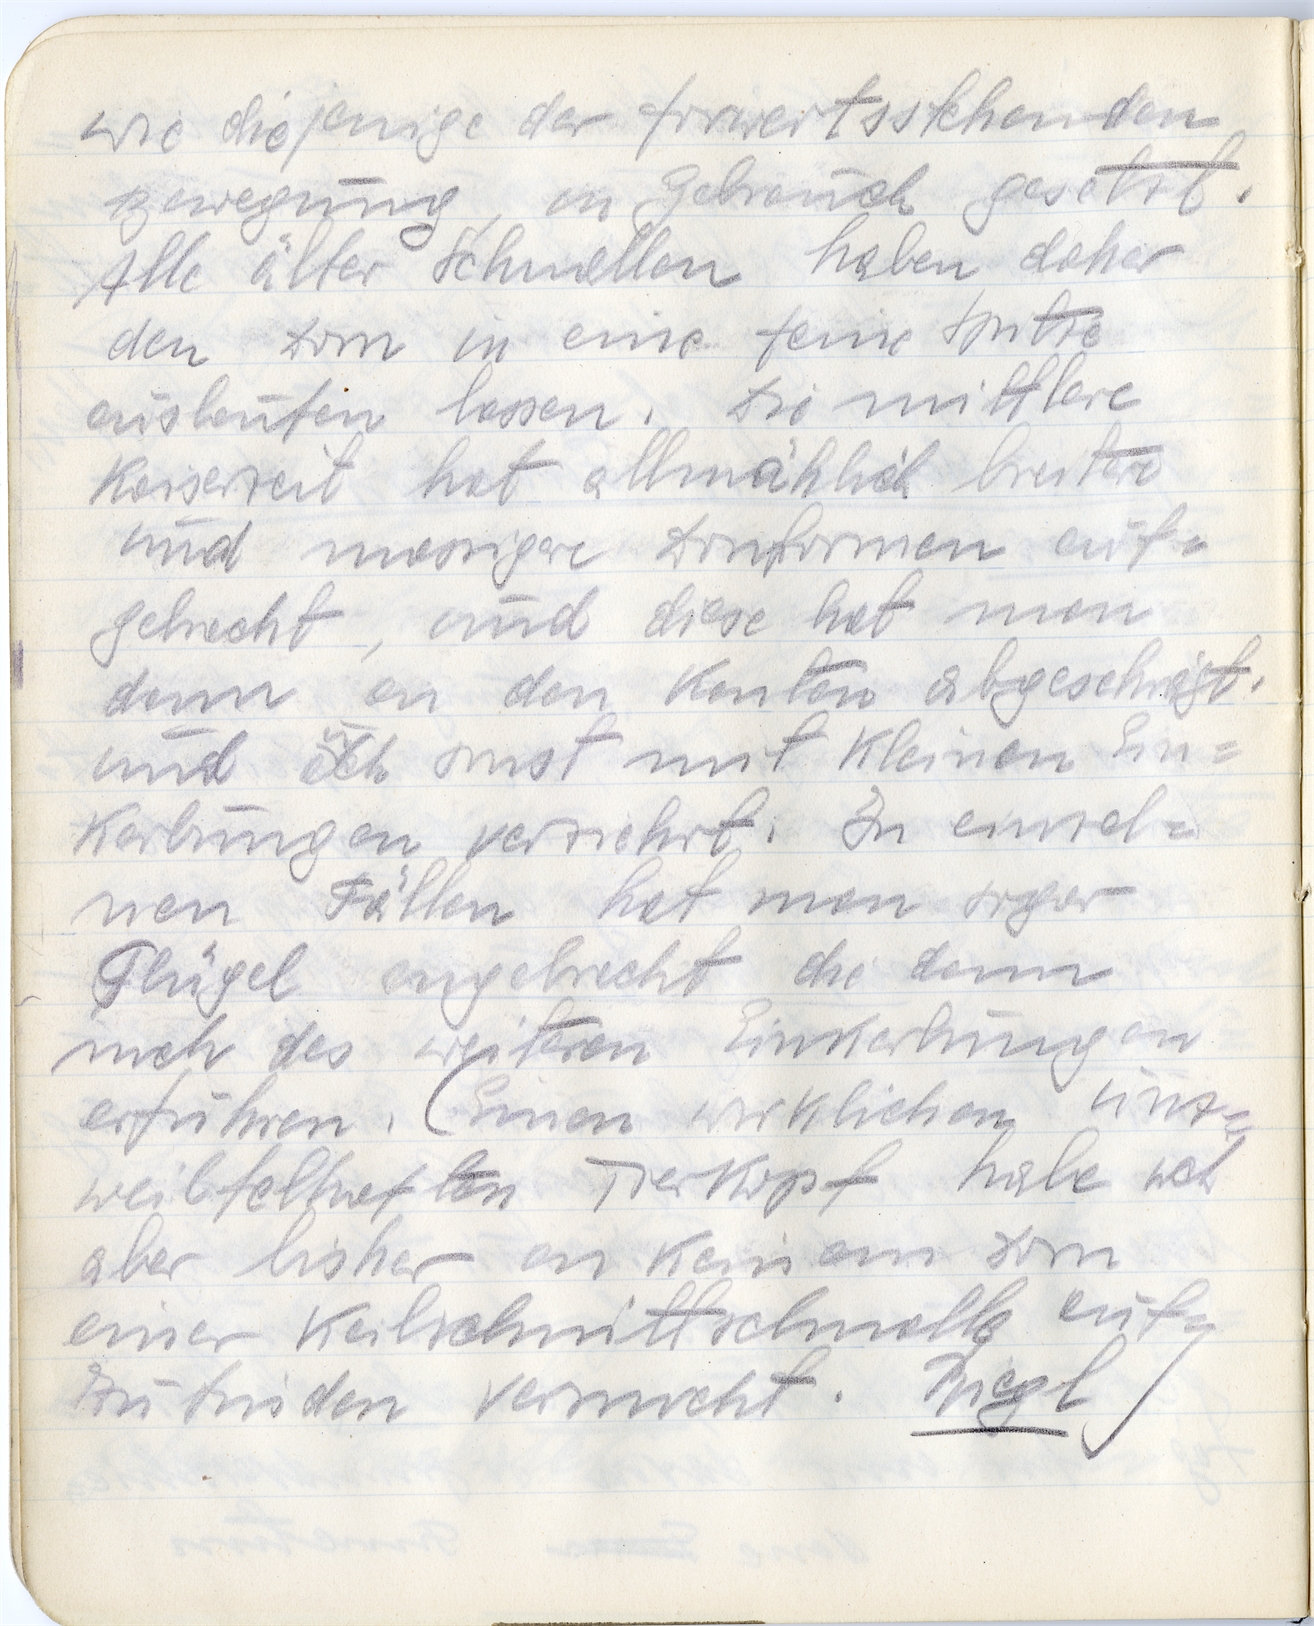 wie diejenige der fortwertsstehenden
Bewegung, in Gebrauch gesetzt.
Alle älter Schnallen haben daher
den Dorn in eine feine Spitze
auslaufen lassen. Die mittlere
Kaiserzeit hat allmählich breitere
und massigere Dornformen auf=
gebracht, und diese hat man
dann an den Kanten abgeschrägt.
und auch sonst mit kleinen Ein=
kerbungen versehrt. In einzel=
nen Fällen hat man sogar
Flügel angebracht die dann
noch des weiteren Einkerbungen
erfuhren. (Einen wirklichen unz=
weibfelhaften Tierkopf habe ich
aber bisher an keinem Dorn
einer Keilschnittschnalle auf=
zufinden vermocht. Riegl)